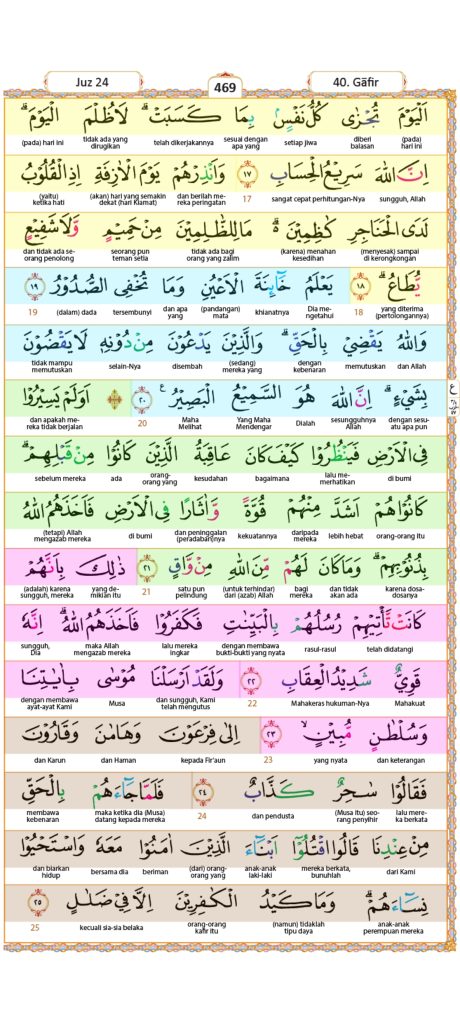 Juz 24
469
40. Gāfir
اَلْيَوْمَ تُجْزٰى كُلُّ نَفْسٍۢ بِمَا كَسَبَتْ ۗ لَا ظُلْمَ الْيَوْمَ ۗ
(pada) hari ini diberi balasan setiap jiwa sesuai dengan apa yang telah dikerjakannya tidak ada yang dirugikan (pada) hari ini
اِنَّ اللّٰهَ سَرِيْعُ الْحِسَابِ ١٧ وَاَنْذِرْهُمْ يَوْمَ الْاٰزِفَةِ اِذِ الْقُلُوْبُ
sungguh, Allah sangat cepat perhitungan-Nya 17 dan berilah mereka peringatan (akan) hari yang semakin dekat (hari Kiamat) (yaitu) ketika hati
لَدَى الْحَنَاجِرِ كٰظِمِيْنَ ۗ مَا لِلظّٰلِمِيْنَ مِنْ حَمِيْمٍ وَّلَا شَفِيْعٍ
(menyesak) sampai di kerongkongan (karena) menahan kesedihan tidak ada bagi orang yang zalim seorang pun teman setia dan tidak ada seorang penolong
يُّطَاعُ ۗ ١٨ يَعْلَمُ خَاۤىِٕنَةَ الْاَعْيُنِ وَمَا تُخْفِى الصُّدُوْرُ ١٩
yang diterima (pertolongannya) 18 Dia mengetahui khianatnya (pandangan) mata dan apa yang tersembunyi (dalam) dada 19
وَاللّٰهُ يَقْضِيْ بِالْحَقِّ ۗ وَالَّذِيْنَ يَدْعُوْنَ مِنْ دُوْنِهٖ لَا يَقْضُوْنَ
dan Allah memutuskan dengan kebenaran (sedang) mereka yang disembah selain-Nya tidak mampu memutuskan
بِشَيْءٍ ۗ اِنَّ اللّٰهَ هُوَ السَّمِيْعُ الْبَصِيْرُ ࣖ ٢٠ اَوَلَمْ يَسِيْرُوْا
dengan sesuatu apa pun sesungguhnya Allah Dialah Yang Maha Mendengar Maha Melihat 20 dan apakah mereka tidak berjalan
فِى الْاَرْضِ فَيَنْظُرُوْا كَيْفَ كَانَ عَاقِبَةُ الَّذِيْنَ كَانُوْا مِنْ قَبْلِهِمْ ۗ
di bumi lalu memerhatikan bagaimana kesudahan orang-orang yang ada sebelum mereka
كَانُوْا هُمْ اَشَدَّ مِنْهُمْ قُوَّةً وَّاٰثَارًا فِى الْاَرْضِ فَاَخَذَهُمُ اللّٰهُ
orang-orang itu lebih hebat daripada mereka kekuatannya dan peninggalan (peradaban)nya di bumi (tetapi) Allah mengazab mereka
بِذُنُوْبِهِمْ ۗ وَمَا كَانَ لَهُمْ مِّنَ اللّٰهِ مِنْ وَّاقٍ ٢١ ذٰلِكَ بِاَنَّهُمْ
karena dosa-dosanya dan tidak akan ada bagi mereka (untuk terhindar) dari (azab) Allah satu pun pelindung 21 yang demikian itu (adalah) karena sungguh, mereka
كَانَتْ تَّأْتِيْهِمْ رُسُلُهُمْ بِالْبَيِّنٰتِ فَكَفَرُوْا فَاَخَذَهُمُ اللّٰهُ ۗ اِنَّهٗ
telah didatangi rasul-rasul dengan membawa bukti-bukti yang nyata lalu mereka ingkar maka Allah mengazab mereka sungguh, Dia
قَوِيٌّ شَدِيْدُ الْعِقَابِ ٢٢ وَلَقَدْ اَرْسَلْنَا مُوْسٰى بِاٰيٰتِنَا
Mahakuat Mahakeras hukuman-Nya 22 dan sungguh, Kami telah mengutus Musa dengan membawa ayat-ayat Kami
وَسُلْطٰنٍ مُّبِيْنٍۙ ٢٣ اِلٰى فِرْعَوْنَ وَهَامٰنَ وَقَارُوْنَ
dan keterangan yang nyata 23 kepada Fir'aun dan Haman dan Karun
فَقَالُوْا سٰحِرٌ كَذَّابٌ ٢٤ فَلَمَّا جَاۤءَهُمْ بِالْحَقِّ
lalu mereka berkata (Musa itu) seorang penyihir dan pendusta 24 maka ketika dia (Musa) datang kepada mereka membawa kebenaran
مِنْ عِنْدِنَا قَالُوا اقْتُلُوْٓا اَبْنَاۤءَ الَّذِيْنَ اٰمَنُوْا مَعَهٗ وَاسْتَحْيُوْا
dari Kami mereka berkata, bunuhlah anak-anak laki-laki (dari) orang-orang yang beriman bersama dia dan biarkan hidup
نِسَاۤءَهُمْ ۗ وَمَا كَيْدُ الْكٰفِرِيْنَ اِلَّا فِيْ ضَلٰلٍ ٢٥
anak-anak perempuan mereka (namun) tidaklah tipu daya orang-orang kafir itu kecuali sia-sia belaka 25